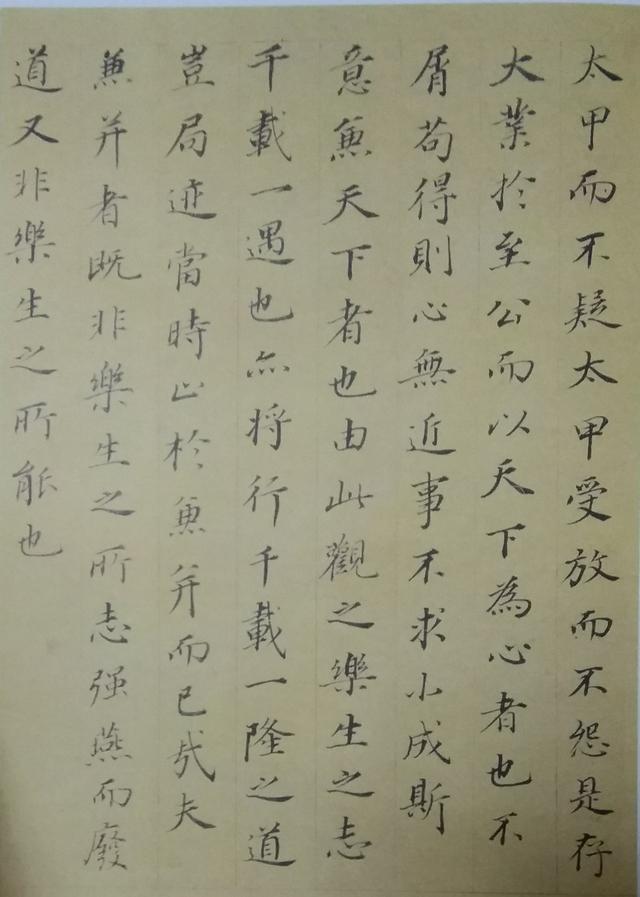 太甲而不疑太甲受放而不怨是存
大業於至公而以天下為心者也不
屑苟得則心無近事不求小成斯
意兼天下者也由此觀之樂生之志
千載一遇也亦将行千載一隆之道
豈局迹當時止於兼并而已哉夫
兼并者既非樂生之所志强燕而廢
道又非樂生之所能也